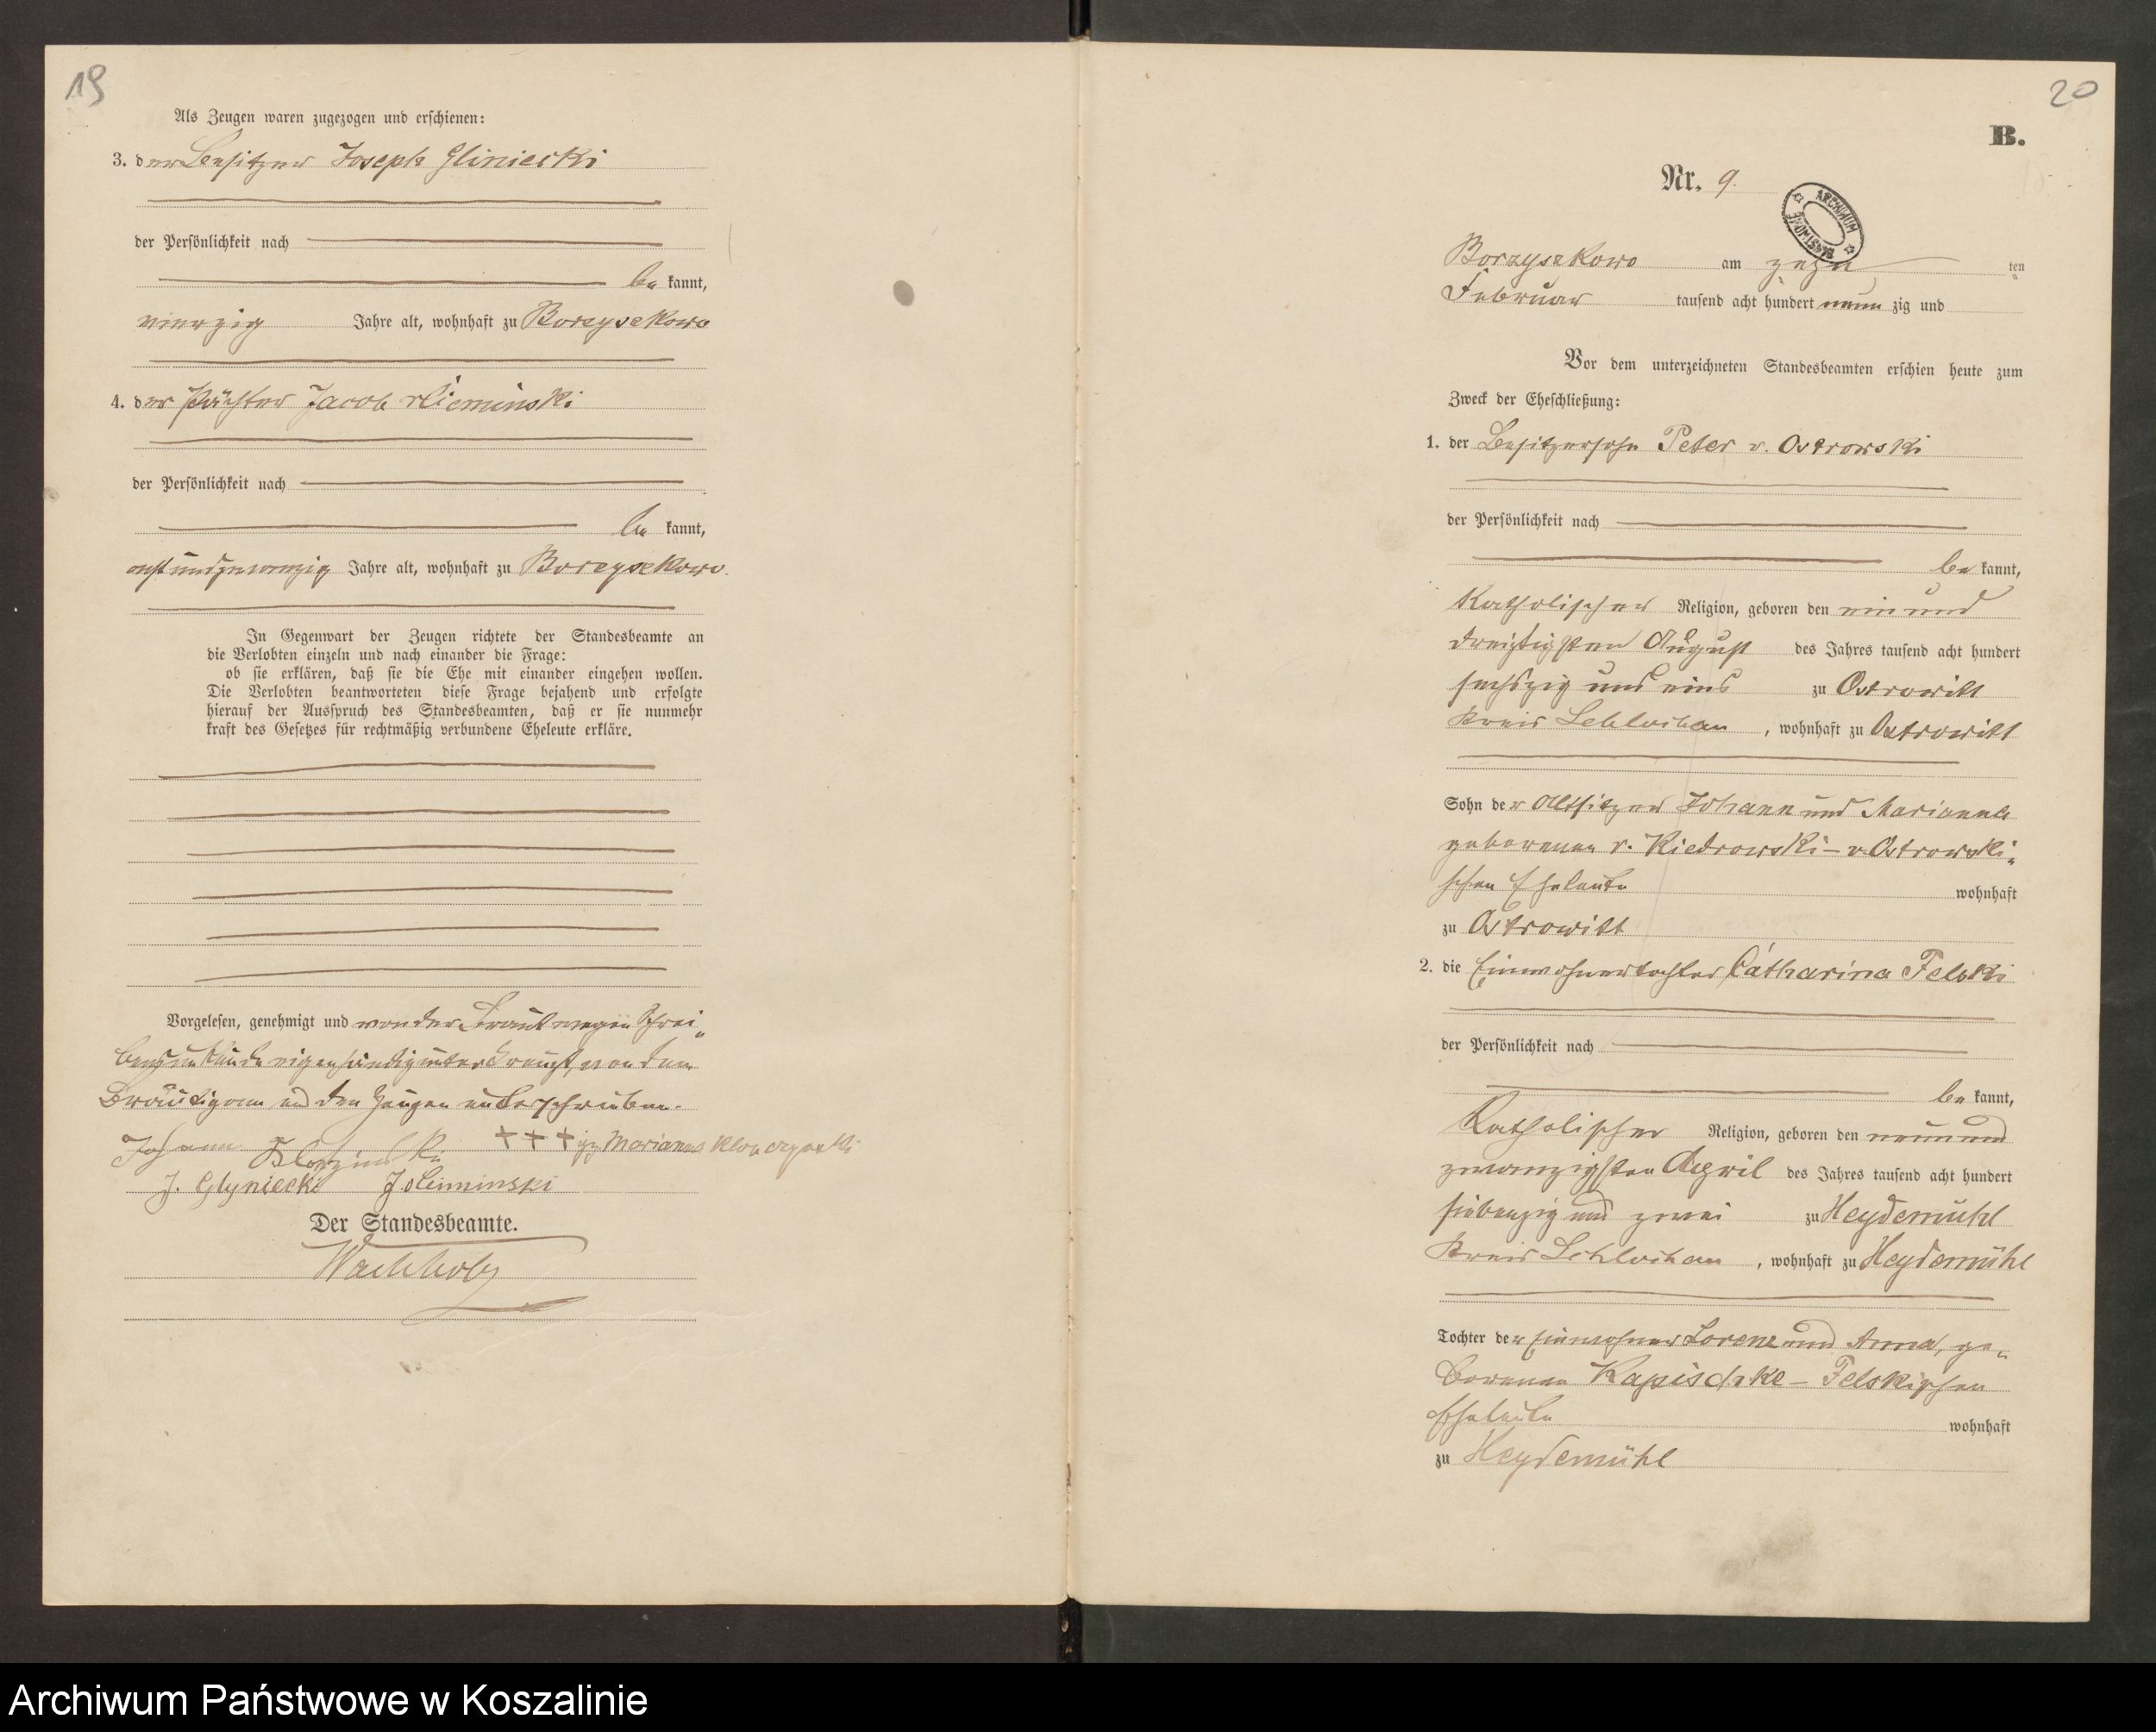 19
Als Zeugen waren zugezogen und erschienen:
3. der Besitzer Joseph Gliniecki
der Persönlichkeit nach
be kannt,
vierzig Jahre alt, wohnhaft zu Borzyszkowo
4. der Pächter Jacob
der Persönlichkeit nach
be kannt,
achtundzwanzig Jahre alt, wohnhaft zu Borzyszkowo.
In Gegenwart der Zeugen richtete der Standesbeamte an
die Verlobten einzeln und nach einander die Frage:
ob sie erklären, daß sie die Ehe mit einander eingehen wollen.
Die Verlobten beantworteten diese Frage bejahend und erfolgte
hierauf der Ausspruch des Standesbeamten, daß er sie nunmehr
kraft des Gesetzes für rechtmäßig verbundene Eheleute erkläre.
Vorgelesen, genehmigt und von der Braut wegen Schrei-
bensunkunde eigenhändig unterkreuzt, von dem
Bräutigam und den Zeugen unterschrieben.
Johann +++ Marianna
J. Glyniecki
Der Standesbeamte.
Wachholz
20
B.
Nr. 9.
ARCHIWUM
Borzyszkowo am zehn ten
Februar tausend acht hundert neun zig und
Vor dem unterzeichneten Standesbeamten erschien heute zum
Zweck der Eheschließung:
1. der Besitzersohn Peter v. Ostrowski
der Persönlichkeit nach
be kannt,
Katholischer Religion, geboren den ein und
dreißigsten August des Jahres tausend acht hundert
sechszig und eins zu Ostrowitt
Kreis Schlochau, wohnhaft zu Ostrowitt
Sohn der Altsitzer Johann und Marianna
geborenen v. Kiedrowski - v. Ostrowski-
schen Eheleute wohnhaft
zu Ostrowitt
2. die Einwohnertochter Catharina Felski
der Persönlichkeit nach
be kannt,
Katholischer Religion, geboren den neun und
zwanzigsten April des Jahres tausend acht hundert
siebenzig und zwei zu Heydemühl
Kreis Schlochau, wohnhaft zu Heydemühl
Tochter der Einwohner Lorenz und Anna, ge-
borenen Kapischke - Felskischen
Eheleute wohnhaft
zu Heydemühl
Archiwum Państwowe w Koszalinie